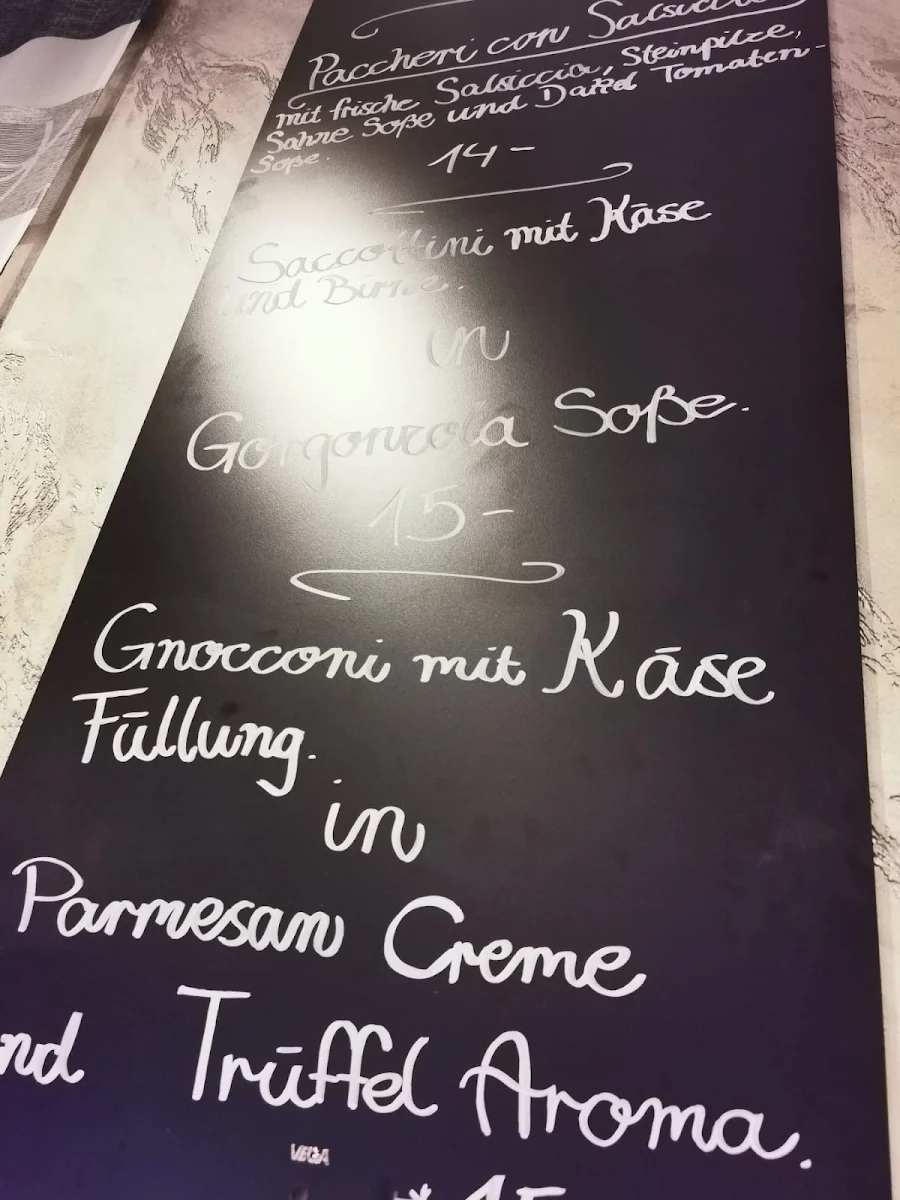 Paccheri con Salsiccia
mit frische Salsiccia, Steinpilze,
Sahne Soße und Tomaten-
Soße.
14-
Saccottini mit Käse
und Birne.
in
Gorgonzola Soße.
15-
Gnocconi mit Käse
Füllung.
in
Parmesan Creme
nd Trüffel Aroma.
VEGA
* 15